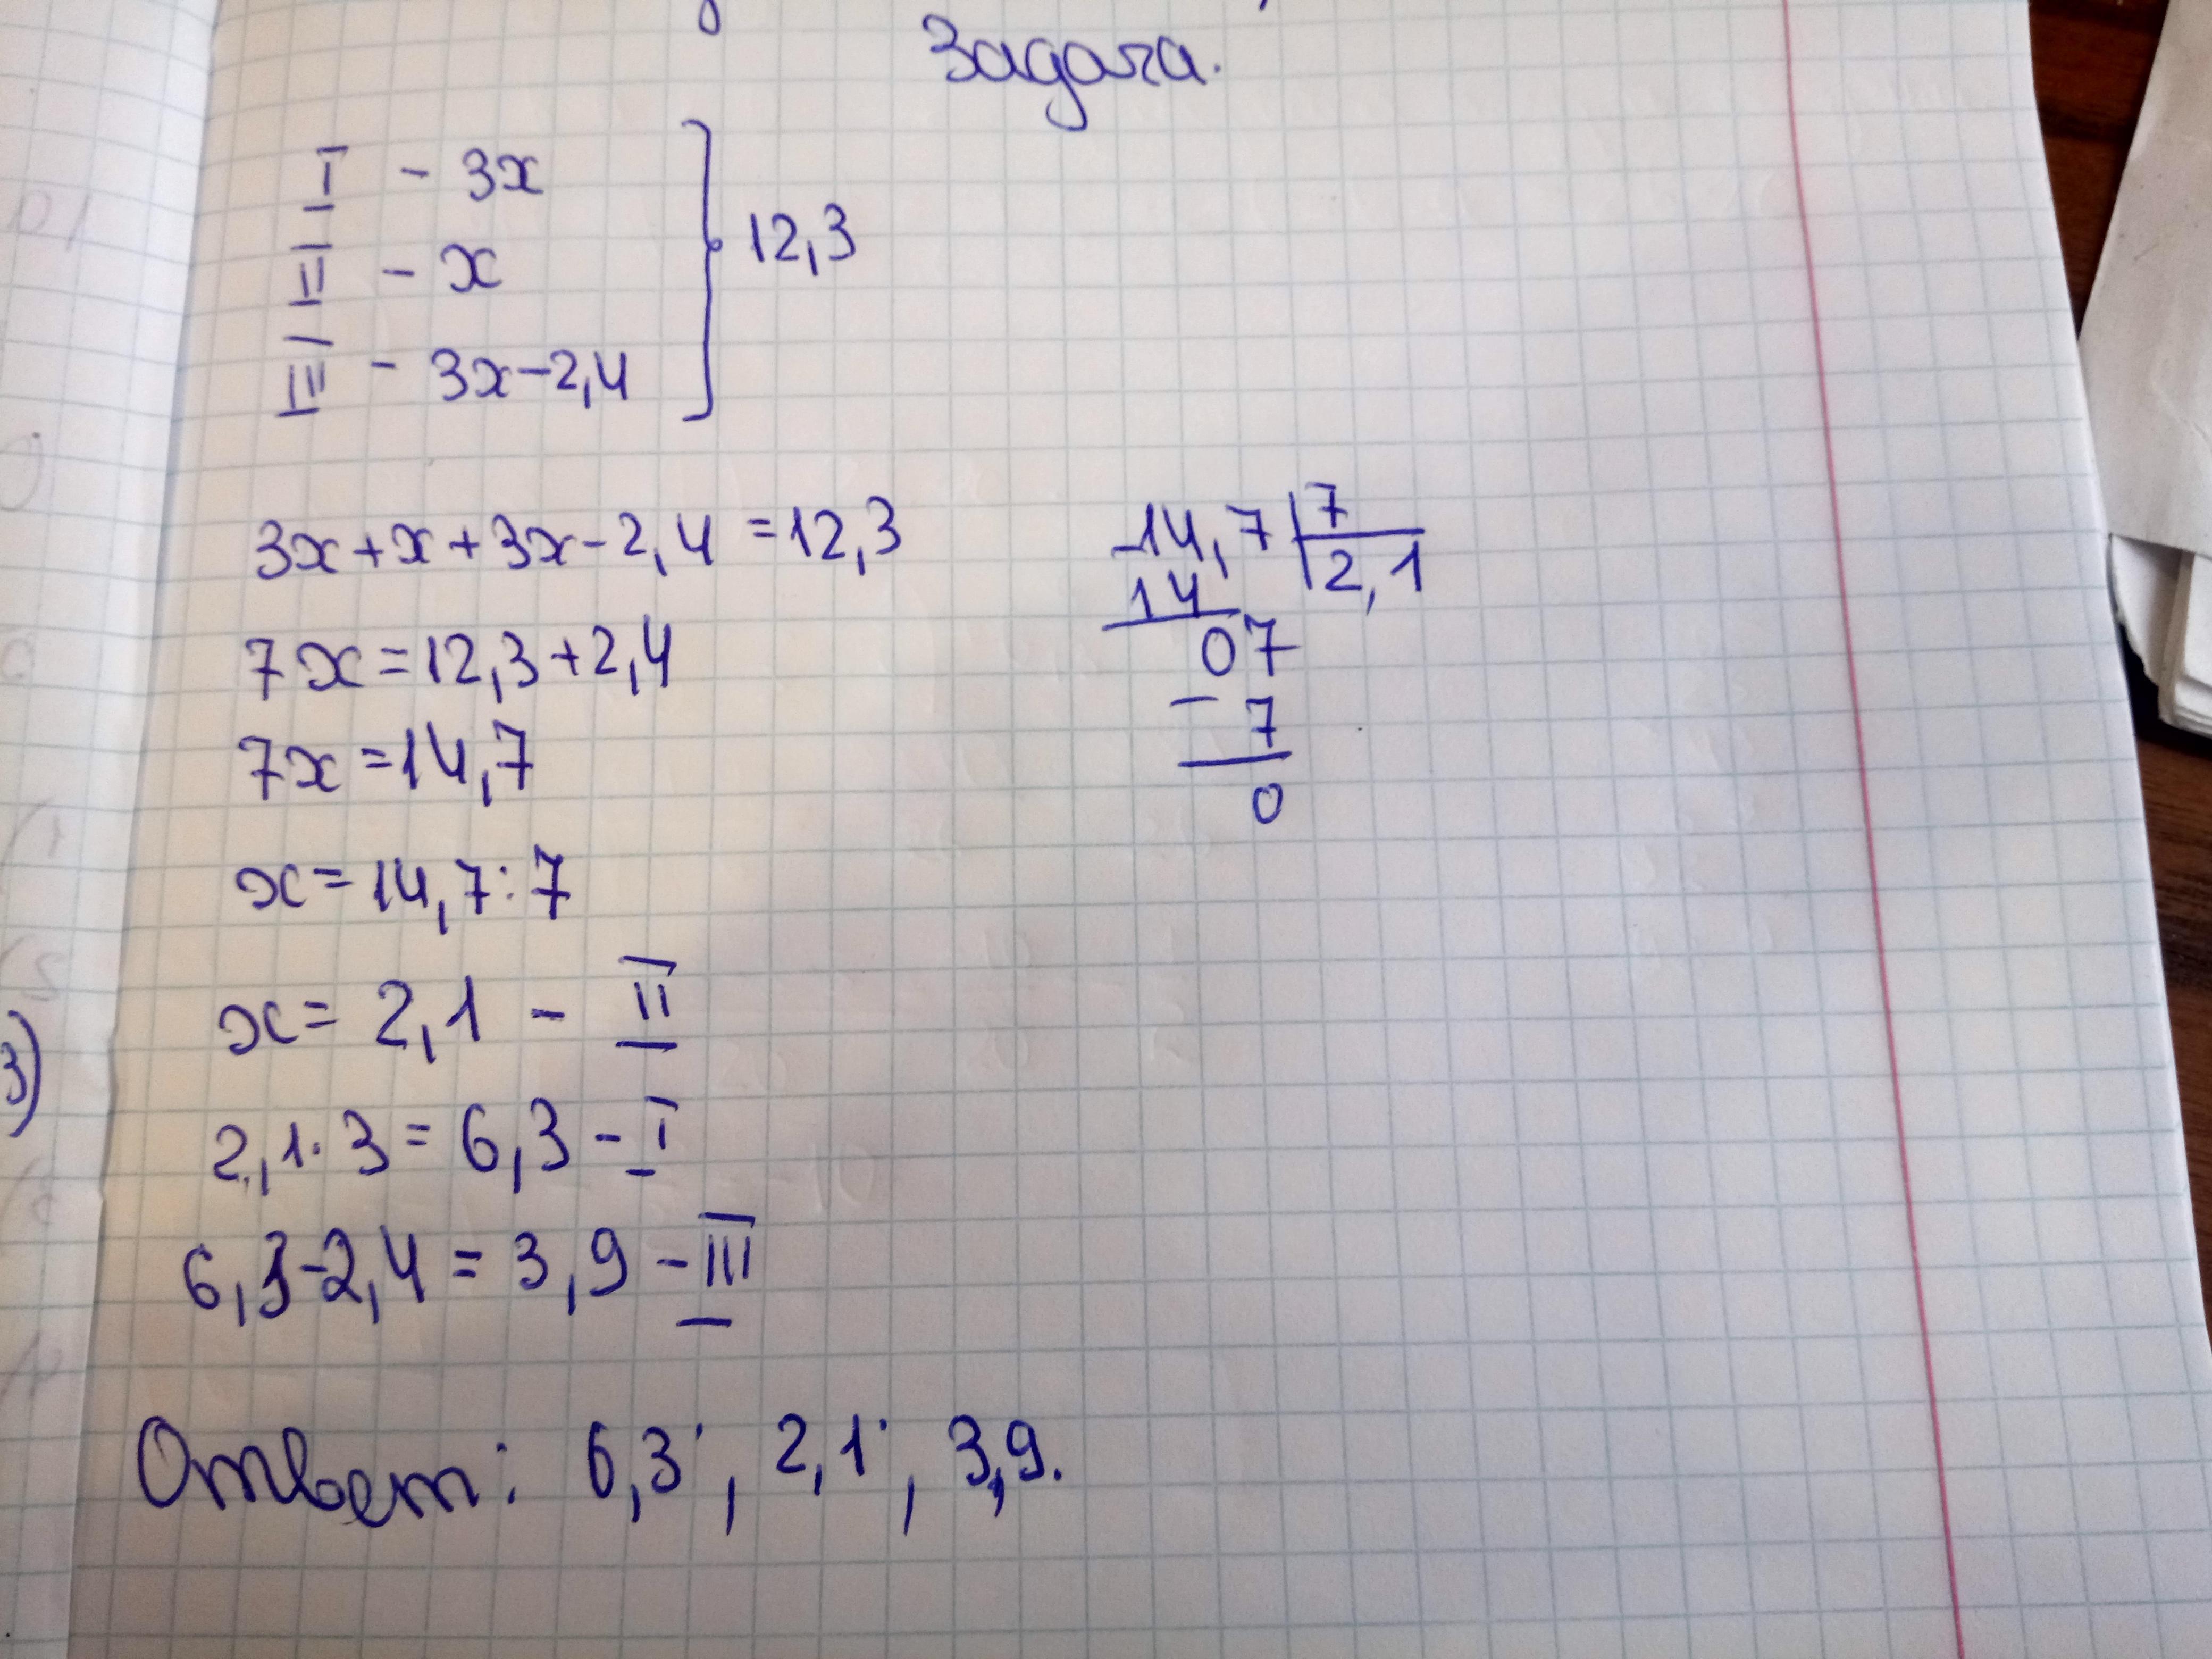 Задача.
I - 3x
II - x
III - 3x-2,4
12,3
3x+x+3x-2,4=12,3
7x=12,3+2,4
7x=14,7
x=14,7:7
x=2,1 - II
2,1·3=6,3 - I
6,3-2,4=3,9 - III
-14,7 7
14 2,1
07
- 7
0
3)
Ответ: 6,3; 2,1; 3,9.